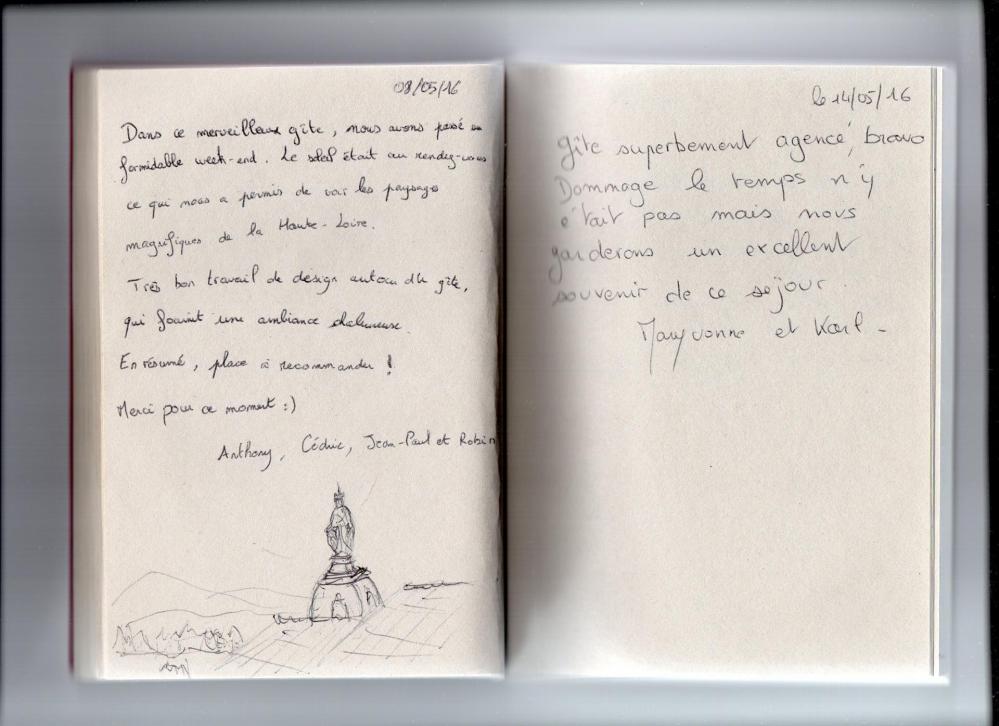 08/05/16
Dans ce merveilleux gîte, nous avons passé un
formidable week-end. Le soleil était au rendez-vous
ce qui nous a permis de voir les paysages
magnifiques de la Haute-Loire.
Très bon travail de design autour du gîte,
qui fournit une ambiance chaleureuse.
En résumé, place à recommander !
Merci pour ce moment :)
Anthony, Cédric, Jean-Paul et Robin
le 14/05/16
gîte superbement agencé, bravo
Dommage le temps n'y
était pas mais nous
garderons un excellent
souvenir de ce séjour.
Maryvonne et Karl -